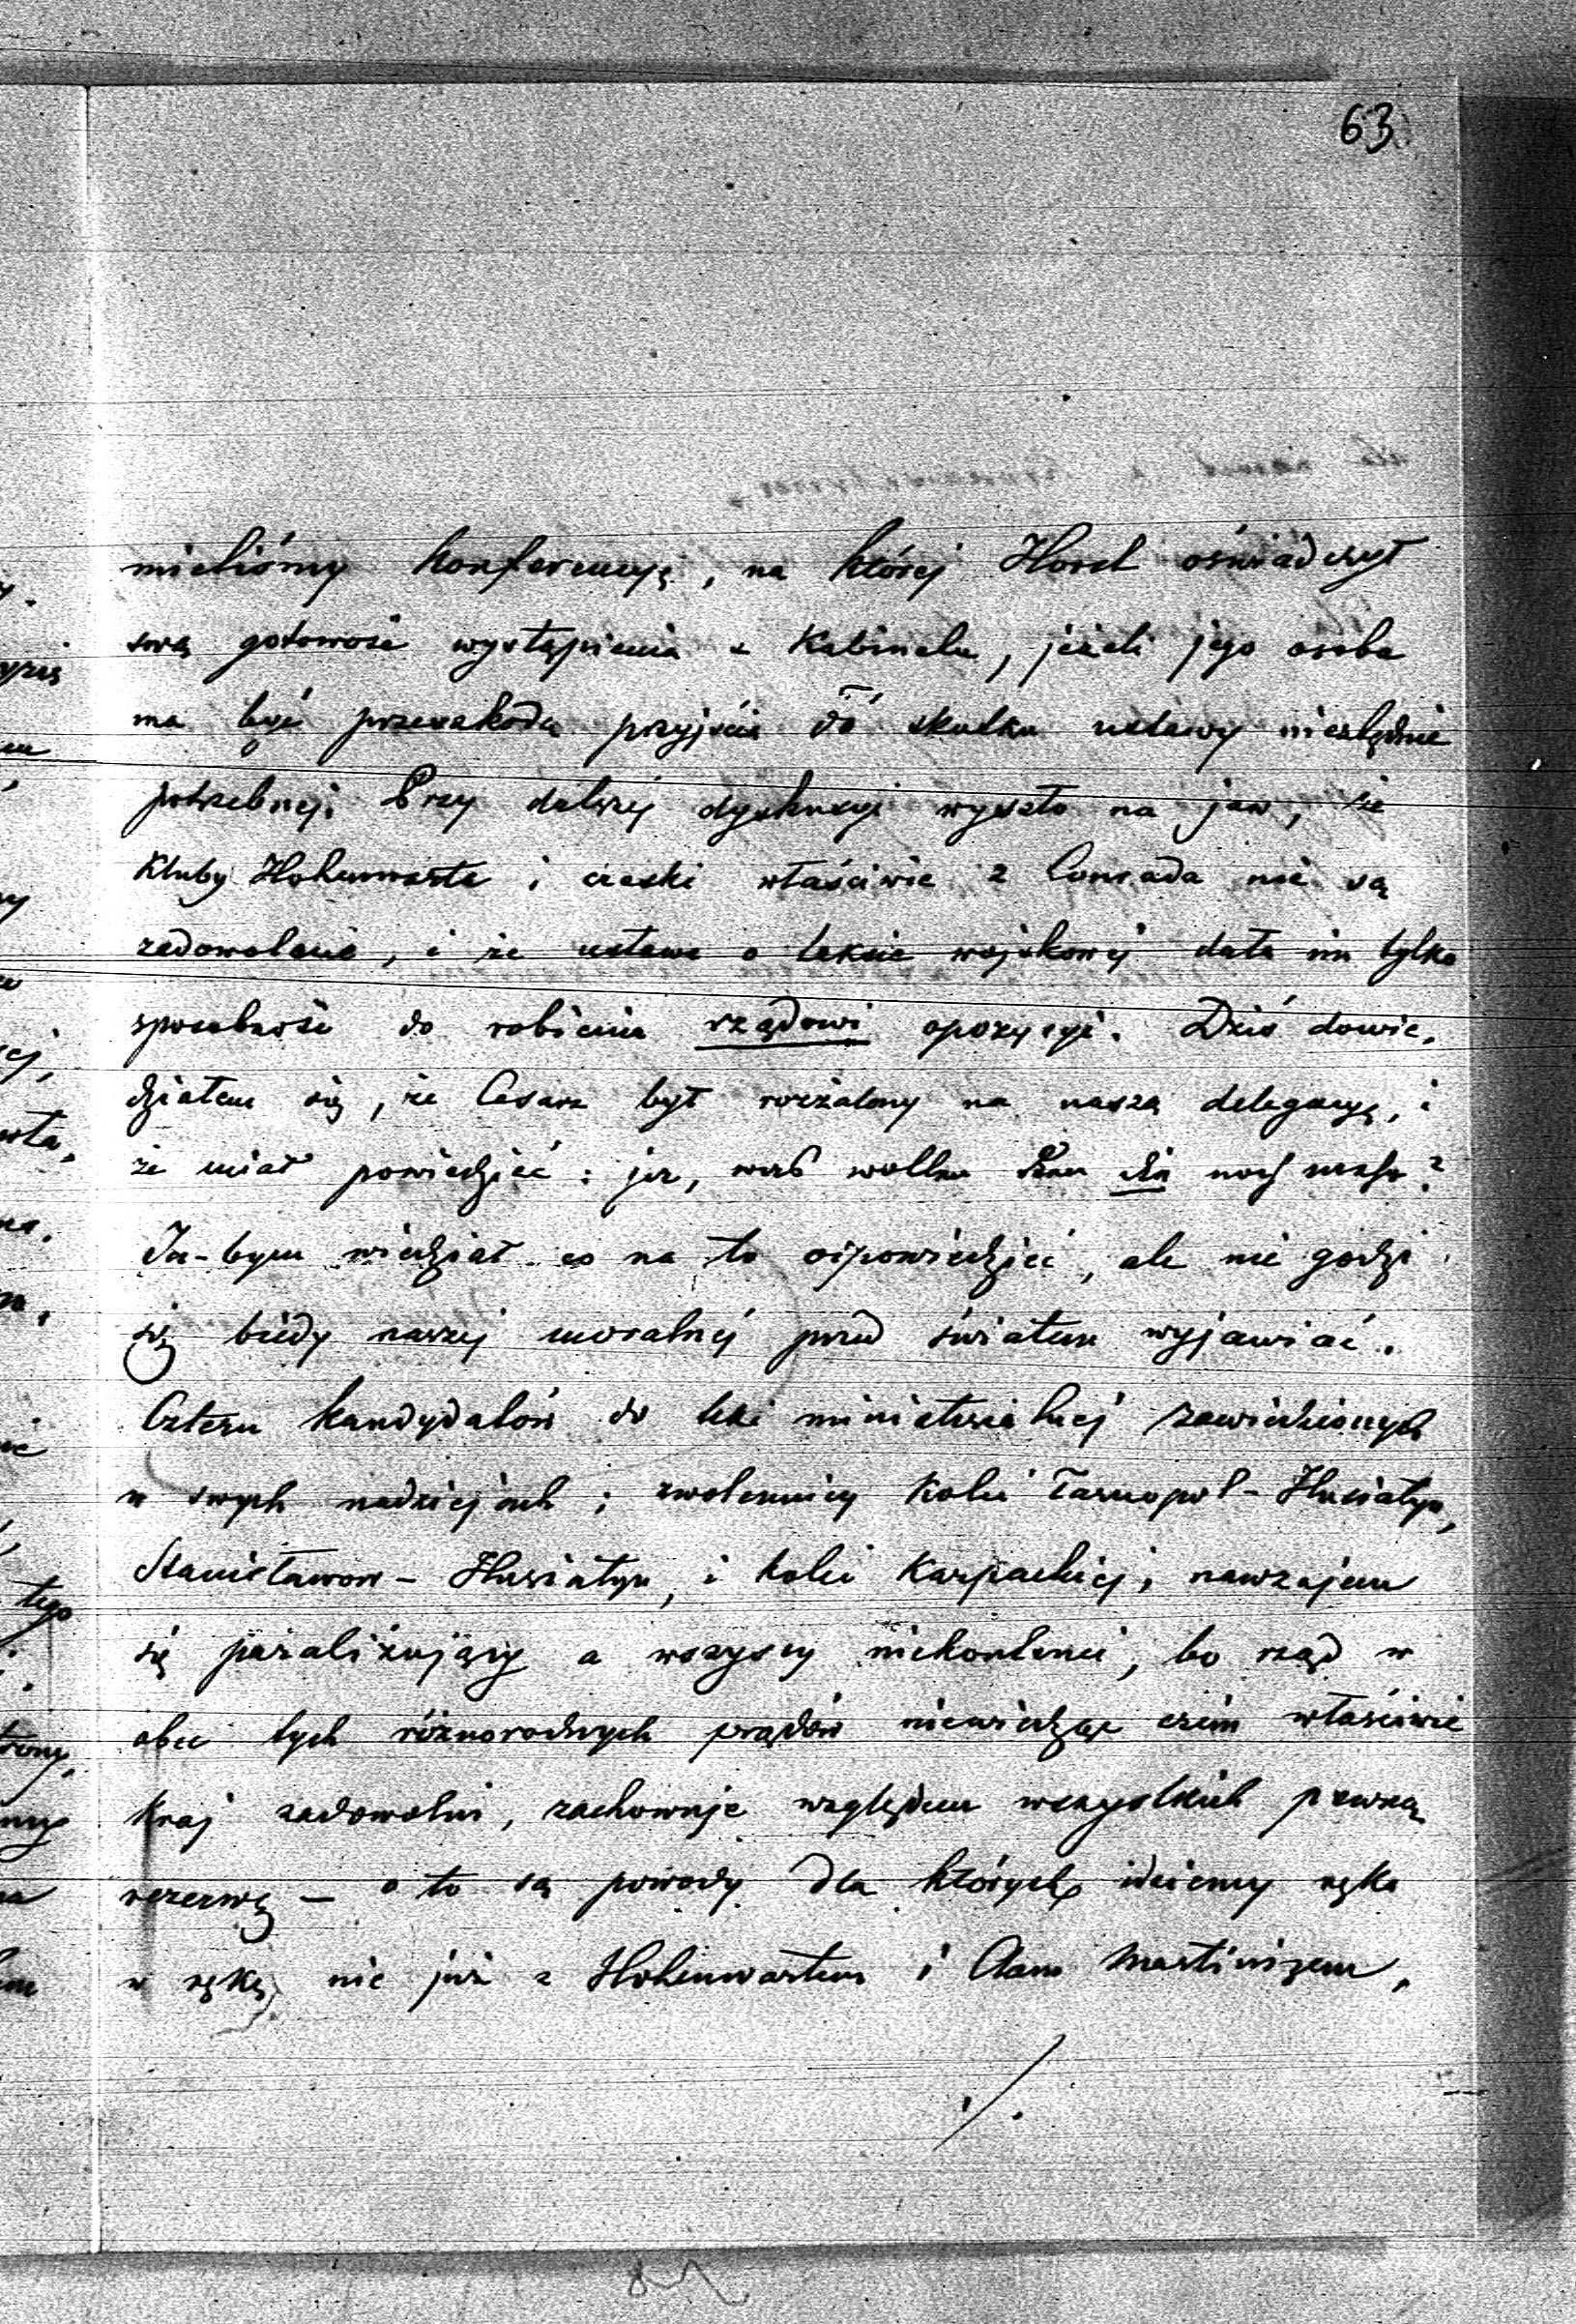 63
mieliśmy konferencyę, na której Horst oświadczył
swą gotowość wystąpienia z Kabinetu, jeżeli jego osoba
ma być przeszkodą przyjścia do skutku ustawy niezbędnie
potrzebnej. Przy dalszej dyskusyi wyszło na jaw, że
Kluby Hohenwarta i czeski właściwie z Conrada nie są
zadowolenie, i że ustawa o taksie wojskowej dała im tylko
sposobność do robienia rządowi opozycyi. Dziś dowie,
działem się, że Cesarz był rozżalony na naszą delegacyę, i
że miał powiedzieć: ja, was wollen denn die noch mehr?
Ja-bym wiedział co na to odpowiedzieć, ale nie godzi
się biédy naszej moralnej przed światem wyjawiać.
Czteru kandydatów do teki ministeryalnej zawiedzionych
w swych nadziejach; zwolennicy Kolei Tarnopol-Husiatyn,
Stanisławow-Husiatyn, i kolei Karpackiej, nawzajem
się paraliżujący a wszyscy niekontenci, bo rząd w
obec tych różnorodnych prądów niewiedząc czem właściwie
kraj zadowolni, zachowuje względem wszystkich pewną
rezerwę – oto są powody dla których idziemy ręka
w rękę, nie już z Hohenwartem i Clam Martinizem,
./.